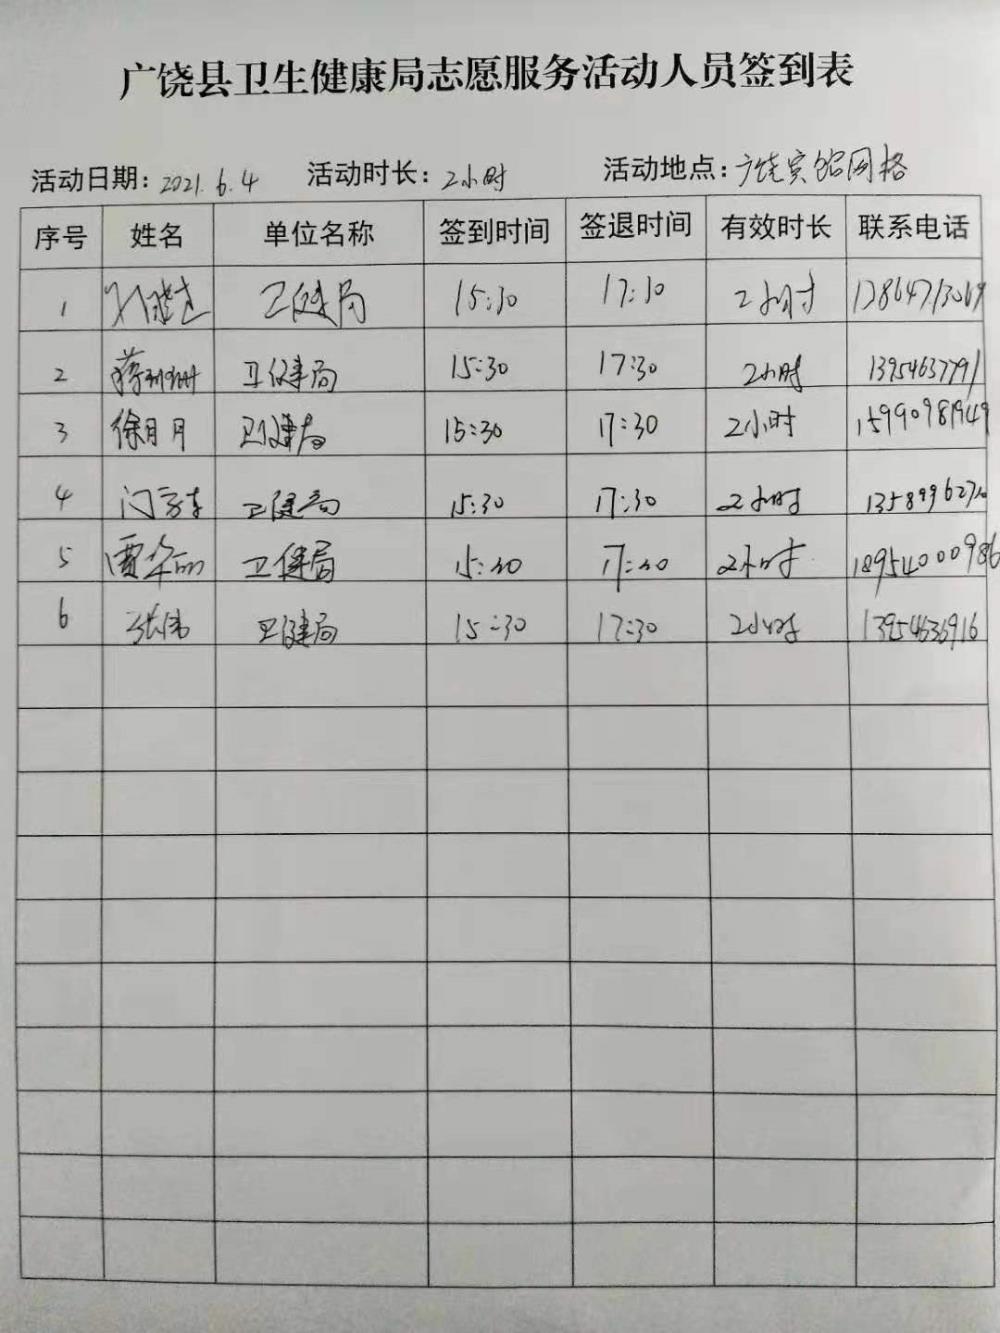 广饶县卫生健康局志愿服务活动人员签到表
活动日期：2021.6.4 活动时长：2小时 活动地点：广饶宾馆网格
序号 姓名 单位名称 签到时间 签退时间 有效时长 联系电话
1 卫健局 15:30 17:30 2小时
2 蒋珊珊 卫健局 15:30 17:30 2小时 13954637791
3 徐月月 卫健局 15:30 17:30 2小时 15990981949
4 卫健局 15:30 17:30 2小时
5 卫健局 15:30 17:30 2小时 18954000986
6 张伟 卫健局 15:30 17:30 2小时 13954636916